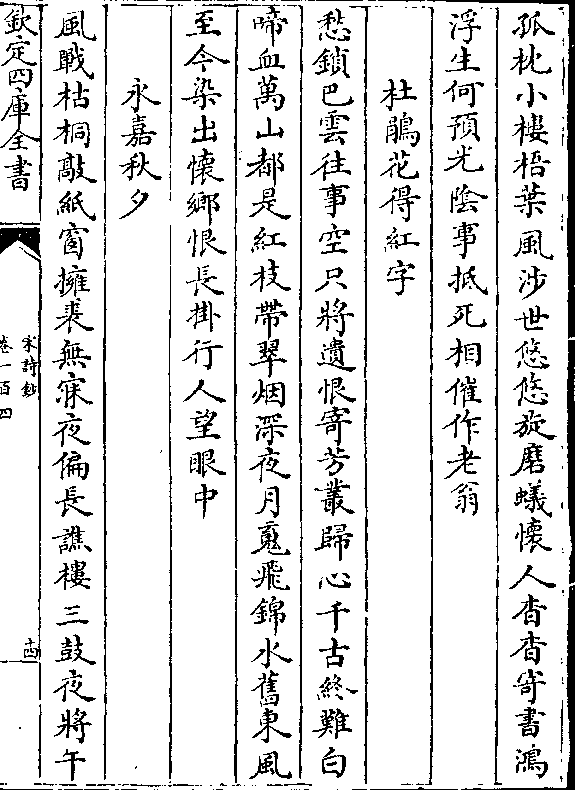 孤枕小樓梧葉風涉世悠悠旋磨蟻懷人杳杳寄書鴻
浮生何預光陰事抵死相催作老翁
杜鵑花得紅字
愁鎖巴雲往事空只將遺恨寄芳叢歸心千古終難白
啼血萬山都是紅枝帶翠烟深夜月魂飛錦水舊東風
至今染出懷鄉恨長掛行人望眼中
永嘉秋夕
風戰枯桐敲紙窗擁裘無寐夜偏長譙樓三鼓夜將午
欽定四庫全書
宋詩鈔
卷一百四
十四